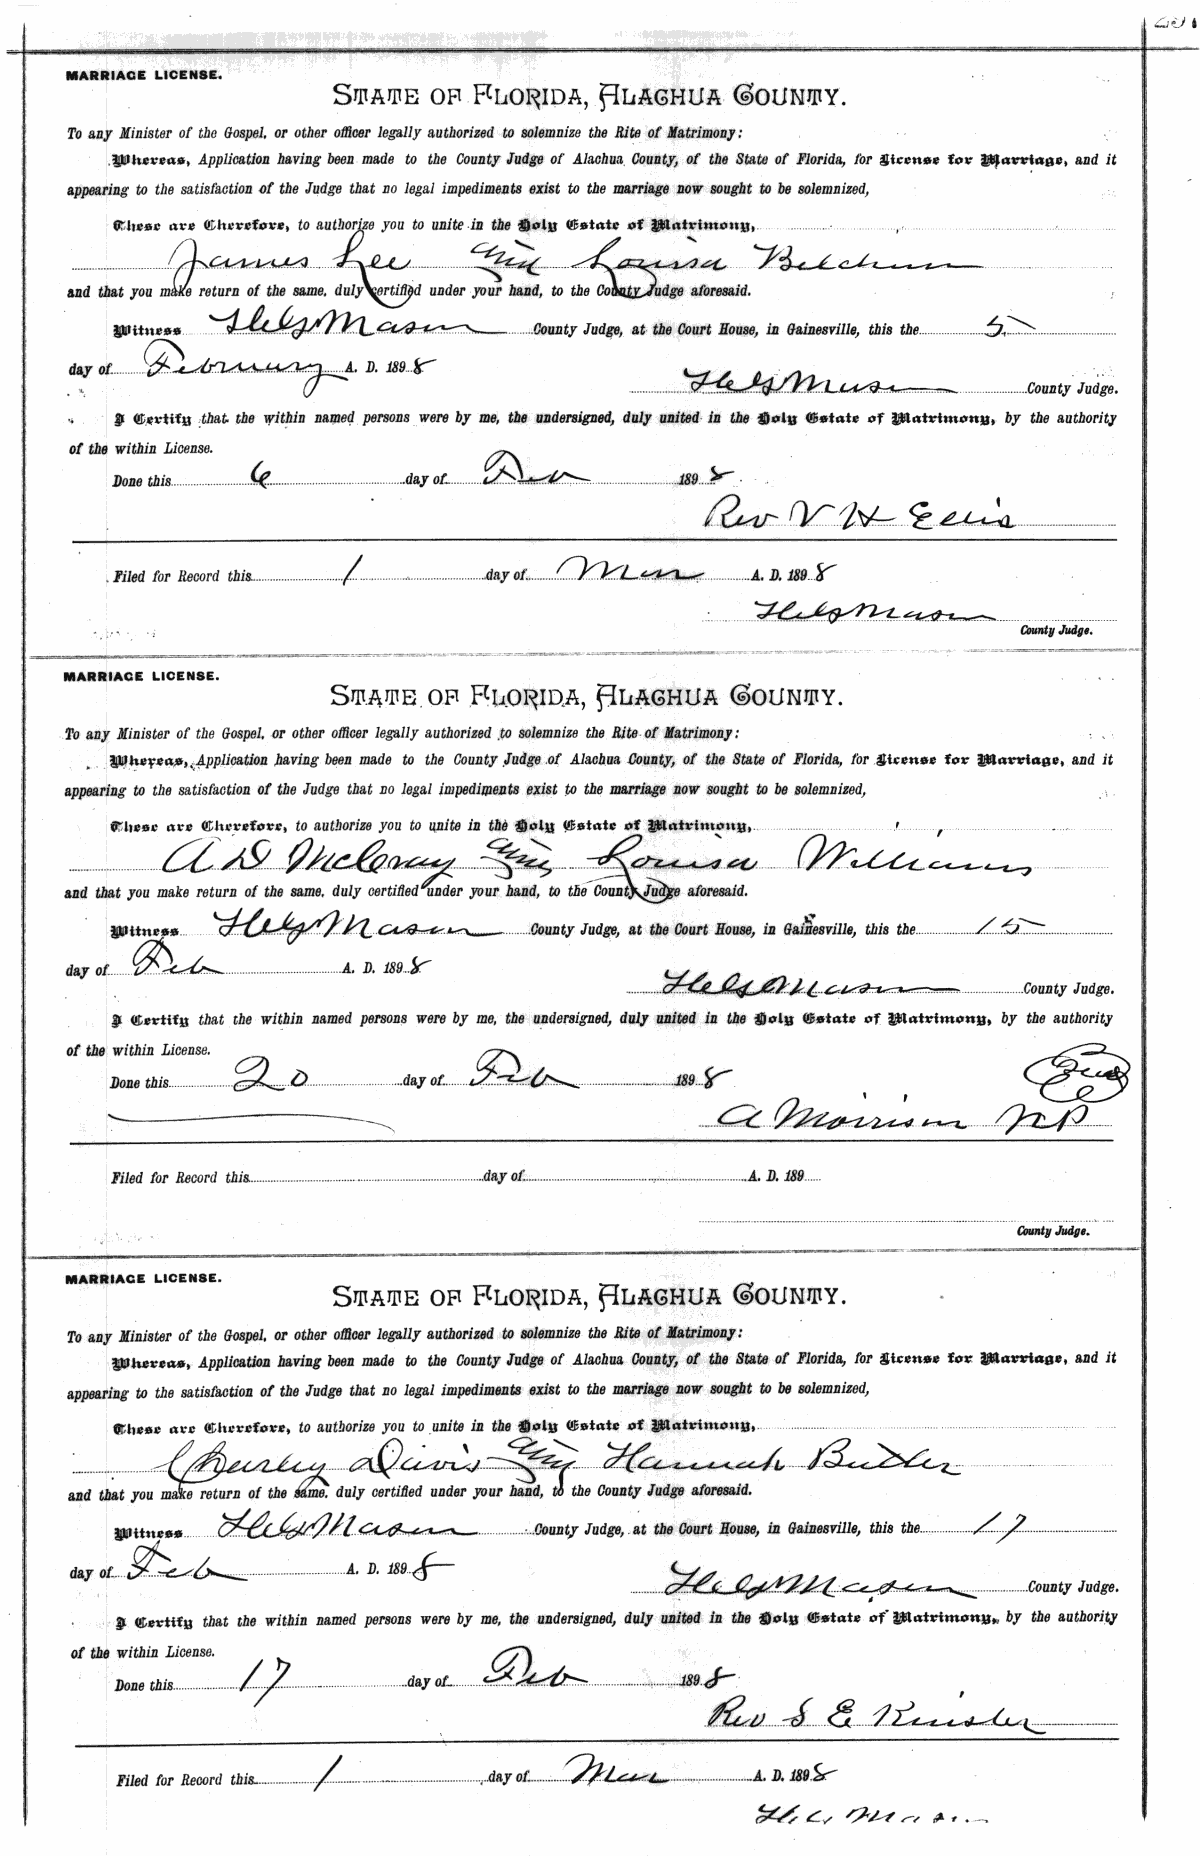 MARRIAGE LICENSE.
STATE OF FLORIDA, ALACHUA COUNTY.
To any Minister of the Gospel, or other officer legally authorized to solemnize the Rite of Matrimony:
Whereas, Application having been made to the County Judge of Alachua County, of the State of Florida, for License for Marriage, and it
appearing to the satisfaction of the Judge that no legal impediments exist to the marriage now sought to be solemnized,
These are Therefore, to authorize you to unite in the Holy Estate of Matrimony,
James Lee and Louisa
and that you make return of the same, duly certified under your hand, to the County Judge aforesaid.
Witness Mason County Judge, at the Court House, in Gainesville, this the 5
day of February A. D. 1898
Mason County Judge.
I Certify that the within named persons were by me, the undersigned, duly united in the Holy Estate of Matrimony, by the authority
of the within License.
Done this 6 day of Feb 1898
Rev V H Ellis
Filed for Record this 1 day of Mar A. D. 1898
Mason
County Judge.
MARRIAGE LICENSE.
STATE OF FLORIDA, ALACHUA COUNTY.
To any Minister of the Gospel, or other officer legally authorized to solemnize the Rite of Matrimony:
Whereas, Application having been made to the County Judge of Alachua County, of the State of Florida, for License for Marriage, and it
appearing to the satisfaction of the Judge that no legal impediments exist to the marriage now sought to be solemnized,
These are Therefore, to authorize you to unite in the Holy Estate of Matrimony,
A D McCray and Louisa Williams
and that you make return of the same, duly certified under your hand, to the County Judge aforesaid.
Witness Mason County Judge, at the Court House, in Gainesville, this the 15
day of Feb A. D. 1898
Mason County Judge.
I Certify that the within named persons were by me, the undersigned, duly united in the Holy Estate of Matrimony, by the authority
of the within License.
Done this 20 day of Feb 1898
A Morrison N P
Filed for Record this day of A. D. 189
County Judge.
MARRIAGE LICENSE.
STATE OF FLORIDA, ALACHUA COUNTY.
To any Minister of the Gospel, or other officer legally authorized to solemnize the Rite of Matrimony:
Whereas, Application having been made to the County Judge of Alachua County, of the State of Florida, for License for Marriage, and it
appearing to the satisfaction of the Judge that no legal impediments exist to the marriage now sought to be solemnized,
These are Therefore, to authorize you to unite in the Holy Estate of Matrimony,
Charley Davis and Hannah Butler
and that you make return of the same, duly certified under your hand, to the County Judge aforesaid.
Witness Mason County Judge, at the Court House, in Gainesville, this the 17
day of Feb A. D. 1898
Mason County Judge.
I Certify that the within named persons were by me, the undersigned, duly united in the Holy Estate of Matrimony, by the authority
of the within License.
Done this 17 day of Feb 1898
Rev S E Kinsler
Filed for Record this 1 day of Mar A. D. 1898
Mason